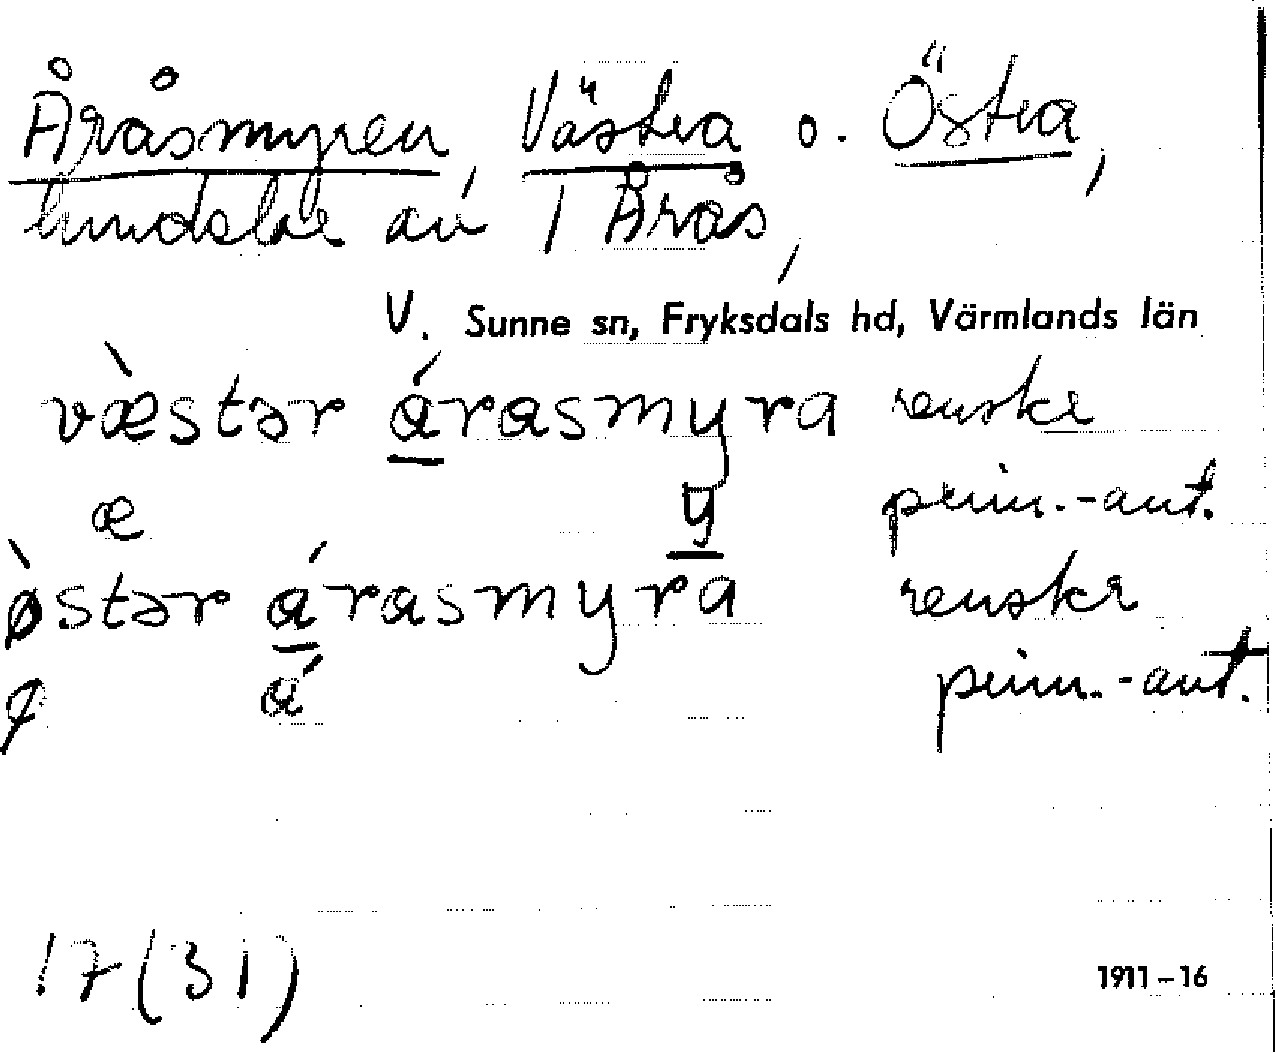 Åråsmyren, Västra o. Östra,
hemdelar av 1 Årås,
V. Sunne sn, Fryksdals hd, Värmlands län
væ̀stər ɑ́rɑsmyra renskr
æ y prim.-ant.
ø̀stər ɑ́rɑsmyra renskr
ɑ́ prim.-ant.
17 (31) 1911–16